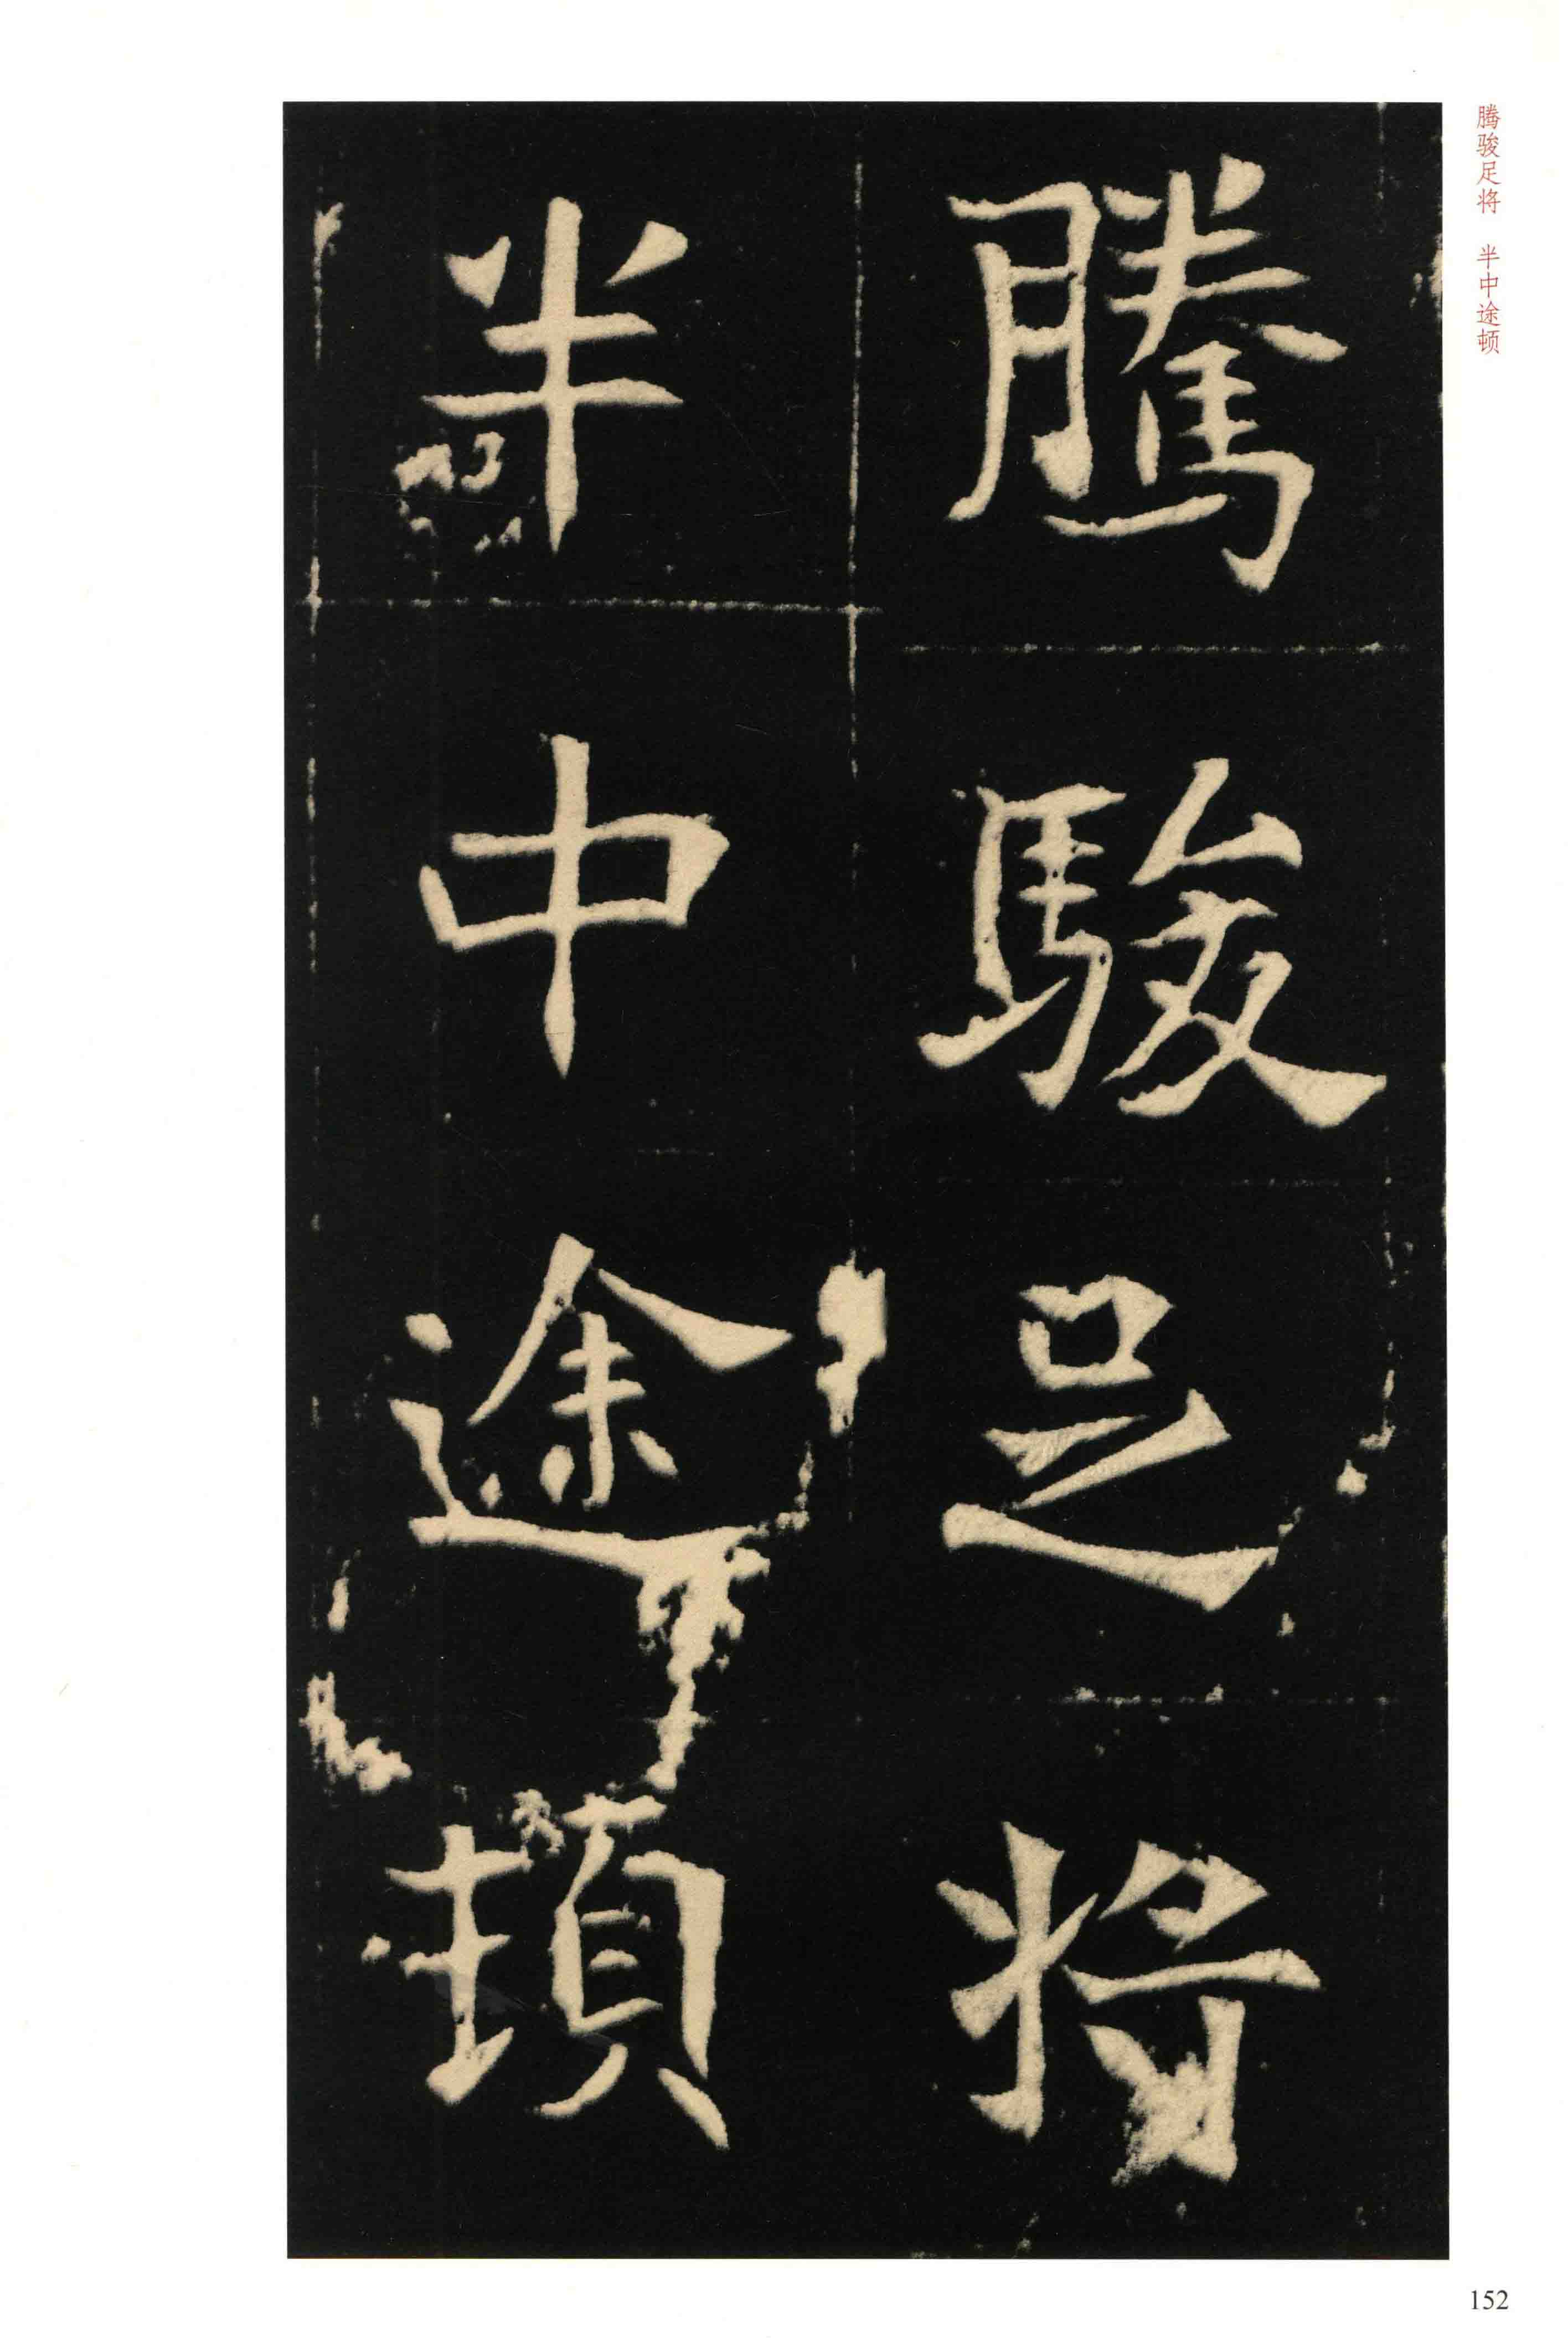 騰駿足將
半中途頓
腾骏足将 半中途顿
152